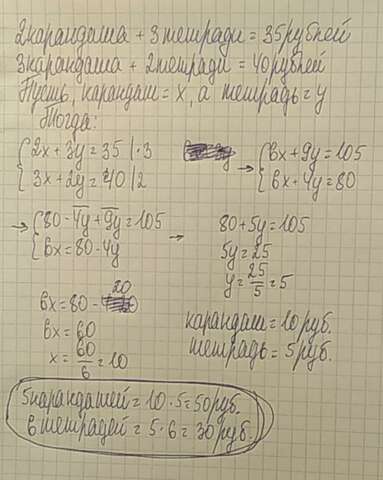 2карандаша + 3тетради = 35рублей
3карандаша + 2тетради = 40рублей
Пусть, карандаш = x, а тетрадь = y
Тогда:
{2x + 3y = 35 |·3
{3x + 2y = 40 |2
→ {6x + 9y = 105
{6x + 4y = 80
→ {80 - 4y + 9y = 105
{6x = 80 - 4y
→ 80 + 5y = 105
5y = 25
y = 25/5 = 5
6x = 80 - 20
6x = 60
x = 60/6 = 10
карандаш = 10 руб.
тетрадь = 5 руб.
5карандашей = 10 · 5 = 50 руб.
6 тетрадей = 5 · 6 = 30 руб.